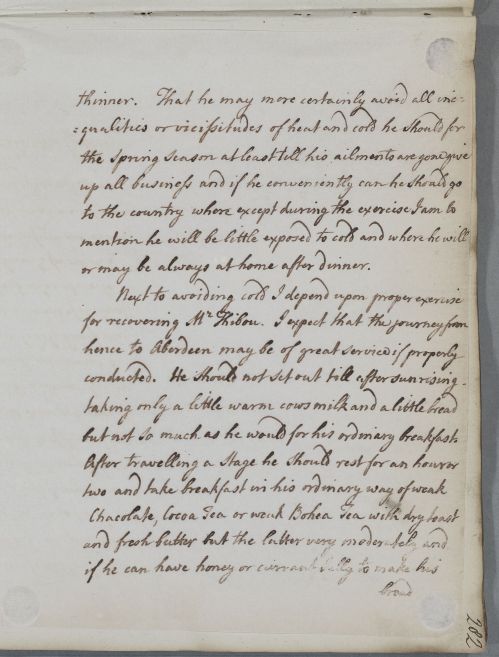 thinner. That he may more certainly avoid all ine=
=qualities or vicissitudes of heat and cold he should for
the Spring Season at least till his ailments are gone give
up all business and if he conveniently can he should go
to the country where except during the exercise I am to
mention he will be little exposed to cold and where he will
or may be always at home after dinner.
Next to avoiding cold I depend upon proper exercise
for recovering Mr. Thibou. I expect that the journey from
hence to Aberdeen may be of great service if properly
conducted. He should not set out till after sunrising
taking only a little warm cows milk and a little bread
but not so much as he would for his ordinary breakfast.
After travelling a Stage he should rest for an hour or
two and take breakfast in his ordinary way of weak
Chacolate, Cocoa Tea or weak Bohea Tea with dry toast
and fresh butter but the latter very moderately and
if he can have honey or currant Jelly to make his
bread
282